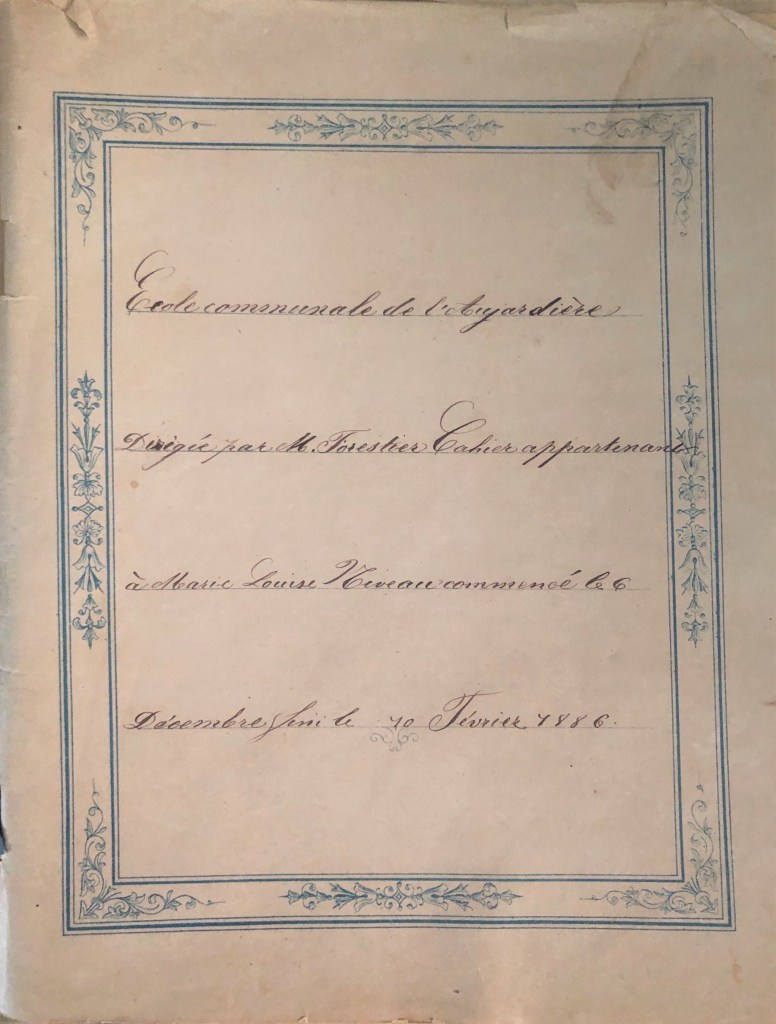 Ecole communale de l'Aujardière
Dirigée par M. Forestier Cahier appartenant
à Marie Louise Niveau commencé le 6
Décembre fini le 10 Février 1886.